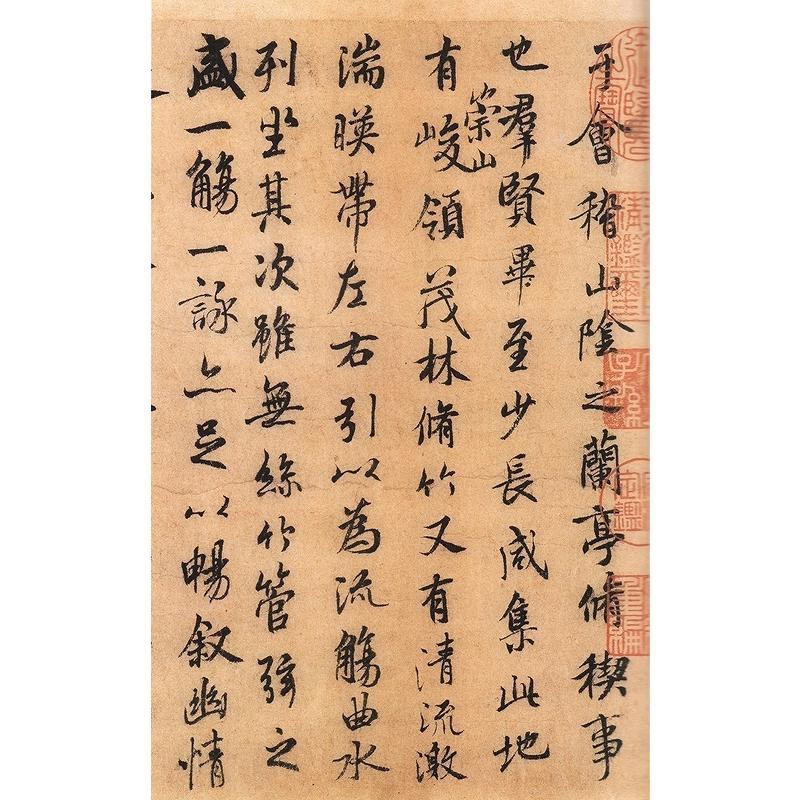 于會稽山陰之蘭亭脩稧事
也羣賢畢至少長咸集此地
有崇山峻領茂林脩竹又有清流激
湍暎帶左右引以為流觴曲水
列坐其次雖無絲竹管弦之
盛一觴一詠亦足以暢叙幽情